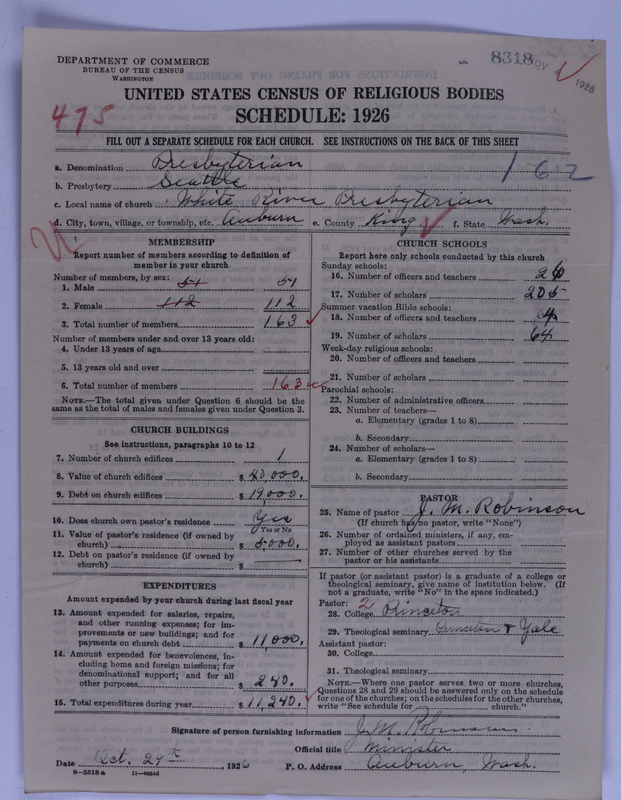 DEPARTMENT OF COMMERCE
BUREAU OF THE CENSUS
WASHINGTON
8318
NOV
1926
UNITED STATES CENSUS OF RELIGIOUS BODIES
SCHEDULE: 1926
475
FILL OUT A SEPARATE SCHEDULE FOR EACH CHURCH. SEE INSTRUCTIONS ON THE BACK OF THIS SHEET
162
a. Denomination Presbyterian
b. Presbytery Seattle
c. Local name of church White River Presbyterian
d. City, town, village, or township, etc. Auburn e. County King f. State Wash.
MEMBERSHIP
Report number of members according to definition of
member in your church
Number of members, by sex:
1. Male 51 51
2. Female 112 112
3. Total number of members 163
Number of members under and over 13 years old:
4. Under 13 years of age
5. 13 years old and over
6. Total number of members 163
NOTE.—The total given under Question 6 should be the
same as the total of males and females given under Question 3.
CHURCH BUILDINGS
See instructions, paragraphs 10 to 12
7. Number of church edifices 1
8. Value of church edifices $ 40,000.
9. Debt on church edifices $ 19,000.
10. Does church own pastor's residence Yes
Yes or No
11. Value of pastor's residence (if owned by
church) $ 5,000.
12. Debt on pastor's residence (if owned by
church) $
EXPENDITURES
Amount expended by your church during last fiscal year
13. Amount expended for salaries, repairs,
and other running expenses; for im-
provements or new buildings; and for
payments on church debt $ 11,000.
14. Amount expended for benevolences, in-
cluding home and foreign missions; for
denominational support; and for all
other purposes $ 240.
15. Total expenditures during year $ 11,240.
CHURCH SCHOOLS
Report here only schools conducted by this church
Sunday schools:
16. Number of officers and teachers 26
17. Number of scholars 205
Summer vacation Bible schools:
18. Number of officers and teachers 4
19. Number of scholars 64
Week-day religious schools:
20. Number of officers and teachers
21. Number of scholars
Parochial schools:
22. Number of administrative officers
23. Number of teachers—
a. Elementary (grades 1 to 8)
b. Secondary
24. Number of scholars—
a. Elementary (grades 1 to 8)
b. Secondary
PASTOR
25. Name of pastor J. M. Robinson
(If church has no pastor, write "None")
26. Number of ordained ministers, if any, em-
ployed as assistant pastors
27. Number of other churches served by the
pastor or his assistants
If pastor (or assistant pastor) is a graduate of a college or
theological seminary, give name of institution below. (If
not a graduate, write "No" in the space indicated.)
Pastor: 2
28. College Princeton
29. Theological seminary Princeton & Yale
Assistant pastor:
30. College
31. Theological seminary
NOTE.—Where one pastor serves two or more churches,
Questions 28 and 29 should be answered only on the schedule
for one of the churches; on the schedules for the other churches,
write "See schedule for church."
Signature of person furnishing information J. M. Robinson
Official title Minister
Date Oct. 29th, 1926 P. O. Address Auburn, Wash.
8—5518 a